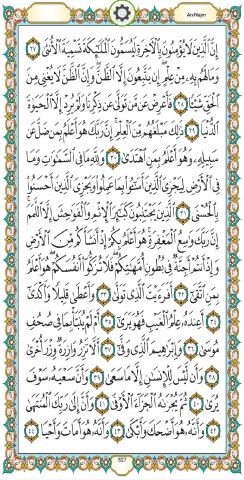 An-Najm
إِنَّ ٱلَّذِينَ لَا يُؤْمِنُونَ بِٱلْأَخِرَةِ لَيُسَمُّونَ ٱلْمَلَٰٓئِكَةَ تَسْمِيَةَ ٱلْأُنثَىٰ ٢٧
وَمَا لَهُم بِهِۦ مِنْ عِلْمٍ إِن يَتَّبِعُونَ إِلَّا ٱلظَّنَّ وَإِنَّ ٱلظَّنَّ لَا يُغْنِى مِنَ
ٱلْحَقِّ شَيْـًٔا ٢٨ فَأَعْرِضْ عَن مَّن تَوَلَّىٰ عَن ذِكْرِنَا وَلَمْ يُرِدْ إِلَّا ٱلْحَيَوٰةَ
ٱلدُّنْيَا ٢٩ ذَٰلِكَ مَبْلَغُهُم مِّنَ ٱلْعِلْمِ إِنَّ رَبَّكَ هُوَ أَعْلَمُ بِمَن ضَلَّ عَن
سَبِيلِهِۦ وَهُوَ أَعْلَمُ بِمَنِ ٱهْتَدَىٰ ٣٠ وَلِلَّهِ مَا فِى ٱلسَّمَٰوَٰتِ وَمَا
فِى ٱلْأَرْضِ لِيَجْزِىَ ٱلَّذِينَ أَسَٰٓـُٔوا۟ بِمَا عَمِلُوا۟ وَيَجْزِىَ ٱلَّذِينَ أَحْسَنُوا۟
بِٱلْحُسْنَى ٣١ ٱلَّذِينَ يَجْتَنِبُونَ كَبَٰٓئِرَ ٱلْإِثْمِ وَٱلْفَوَٰحِشَ إِلَّا ٱللَّمَمَ
إِنَّ رَبَّكَ وَٰسِعُ ٱلْمَغْفِرَةِ هُوَ أَعْلَمُ بِكُمْ إِذْ أَنشَأَكُم مِّنَ ٱلْأَرْضِ
وَإِذْ أَنتُمْ أَجِنَّةٌ فِى بُطُونِ أُمَّهَٰتِكُمْ فَلَا تُزَكُّوٓا۟ أَنفُسَكُمْ هُوَ أَعْلَمُ
بِمَنِ ٱتَّقَىٰٓ ٣٢ أَفَرَءَيْتَ ٱلَّذِى تَوَلَّىٰ ٣٣ وَأَعْطَىٰ قَلِيلًا وَأَكْدَىٰٓ
٣٤ أَعِندَهُۥ عِلْمُ ٱلْغَيْبِ فَهُوَ يَرَىٰٓ ٣٥ أَمْ لَمْ يُنَبَّأْ بِمَا فِى صُحُفِ
مُوسَىٰ ٣٦ وَإِبْرَٰهِيمَ ٱلَّذِى وَفَّىٰٓ ٣٧ أَلَّا تَزِرُ وَازِرَةٌ وِزْرَ أُخْرَىٰ
٣٨ وَأَن لَّيْسَ لِلْإِنسَٰنِ إِلَّا مَا سَعَىٰ ٣٩ وَأَنَّ سَعْيَهُۥ سَوْفَ
يُرَىٰ ٤٠ ثُمَّ يُجْزَىٰهُ ٱلْجَزَآءَ ٱلْأَوْفَىٰ ٤١ وَأَنَّ إِلَىٰ رَبِّكَ ٱلْمُنتَهَىٰ
٤٢ وَأَنَّهُۥ هُوَ أَضْحَكَ وَأَبْكَىٰ ٤٣ وَأَنَّهُۥ هُوَ أَمَاتَ وَأَحْيَا ٤٤
527